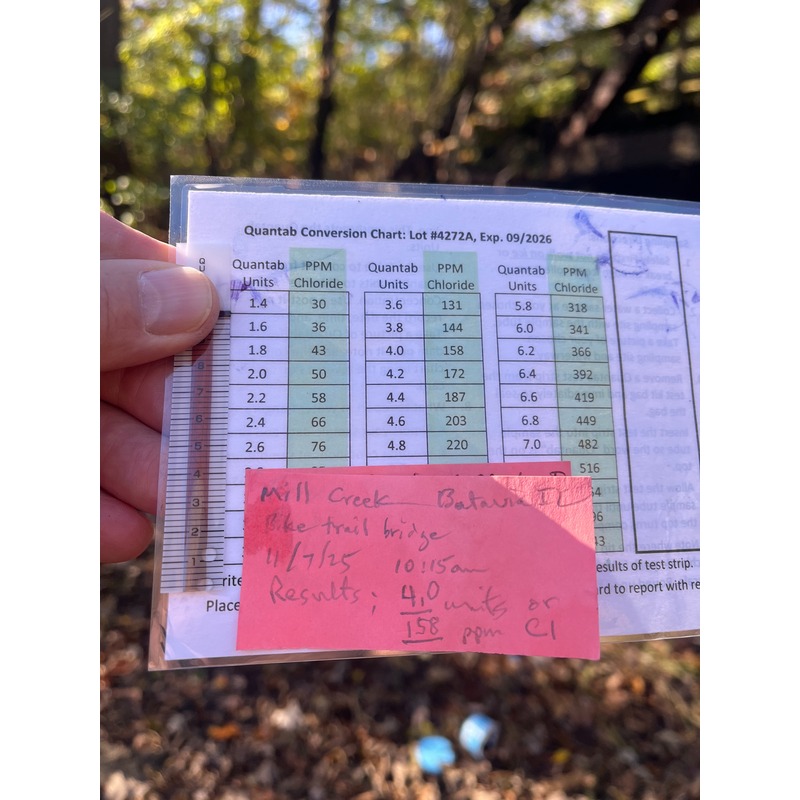 Quantab Conversion Chart: Lot #4272A, Exp. 09/2026
Quantab Units PPM Chloride Quantab Units PPM Chloride Quantab Units PPM Chloride
1.4 30 3.6 131 5.8 318
1.6 36 3.8 144 6.0 341
1.8 43 4.0 158 6.2 366
2.0 50 4.2 172 6.4 392
2.2 58 4.4 187 6.6 419
2.4 66 4.6 203 6.8 449
2.6 76 4.8 220 7.0 482
516
Mill Creek Batavia IL
Bike trail bridge
11/7/25 10:15am
Results; 4.0 units or
158 ppm Cl
esults of test strip.
Place
rd to report with re
8
7
6
5
4
3
2
1